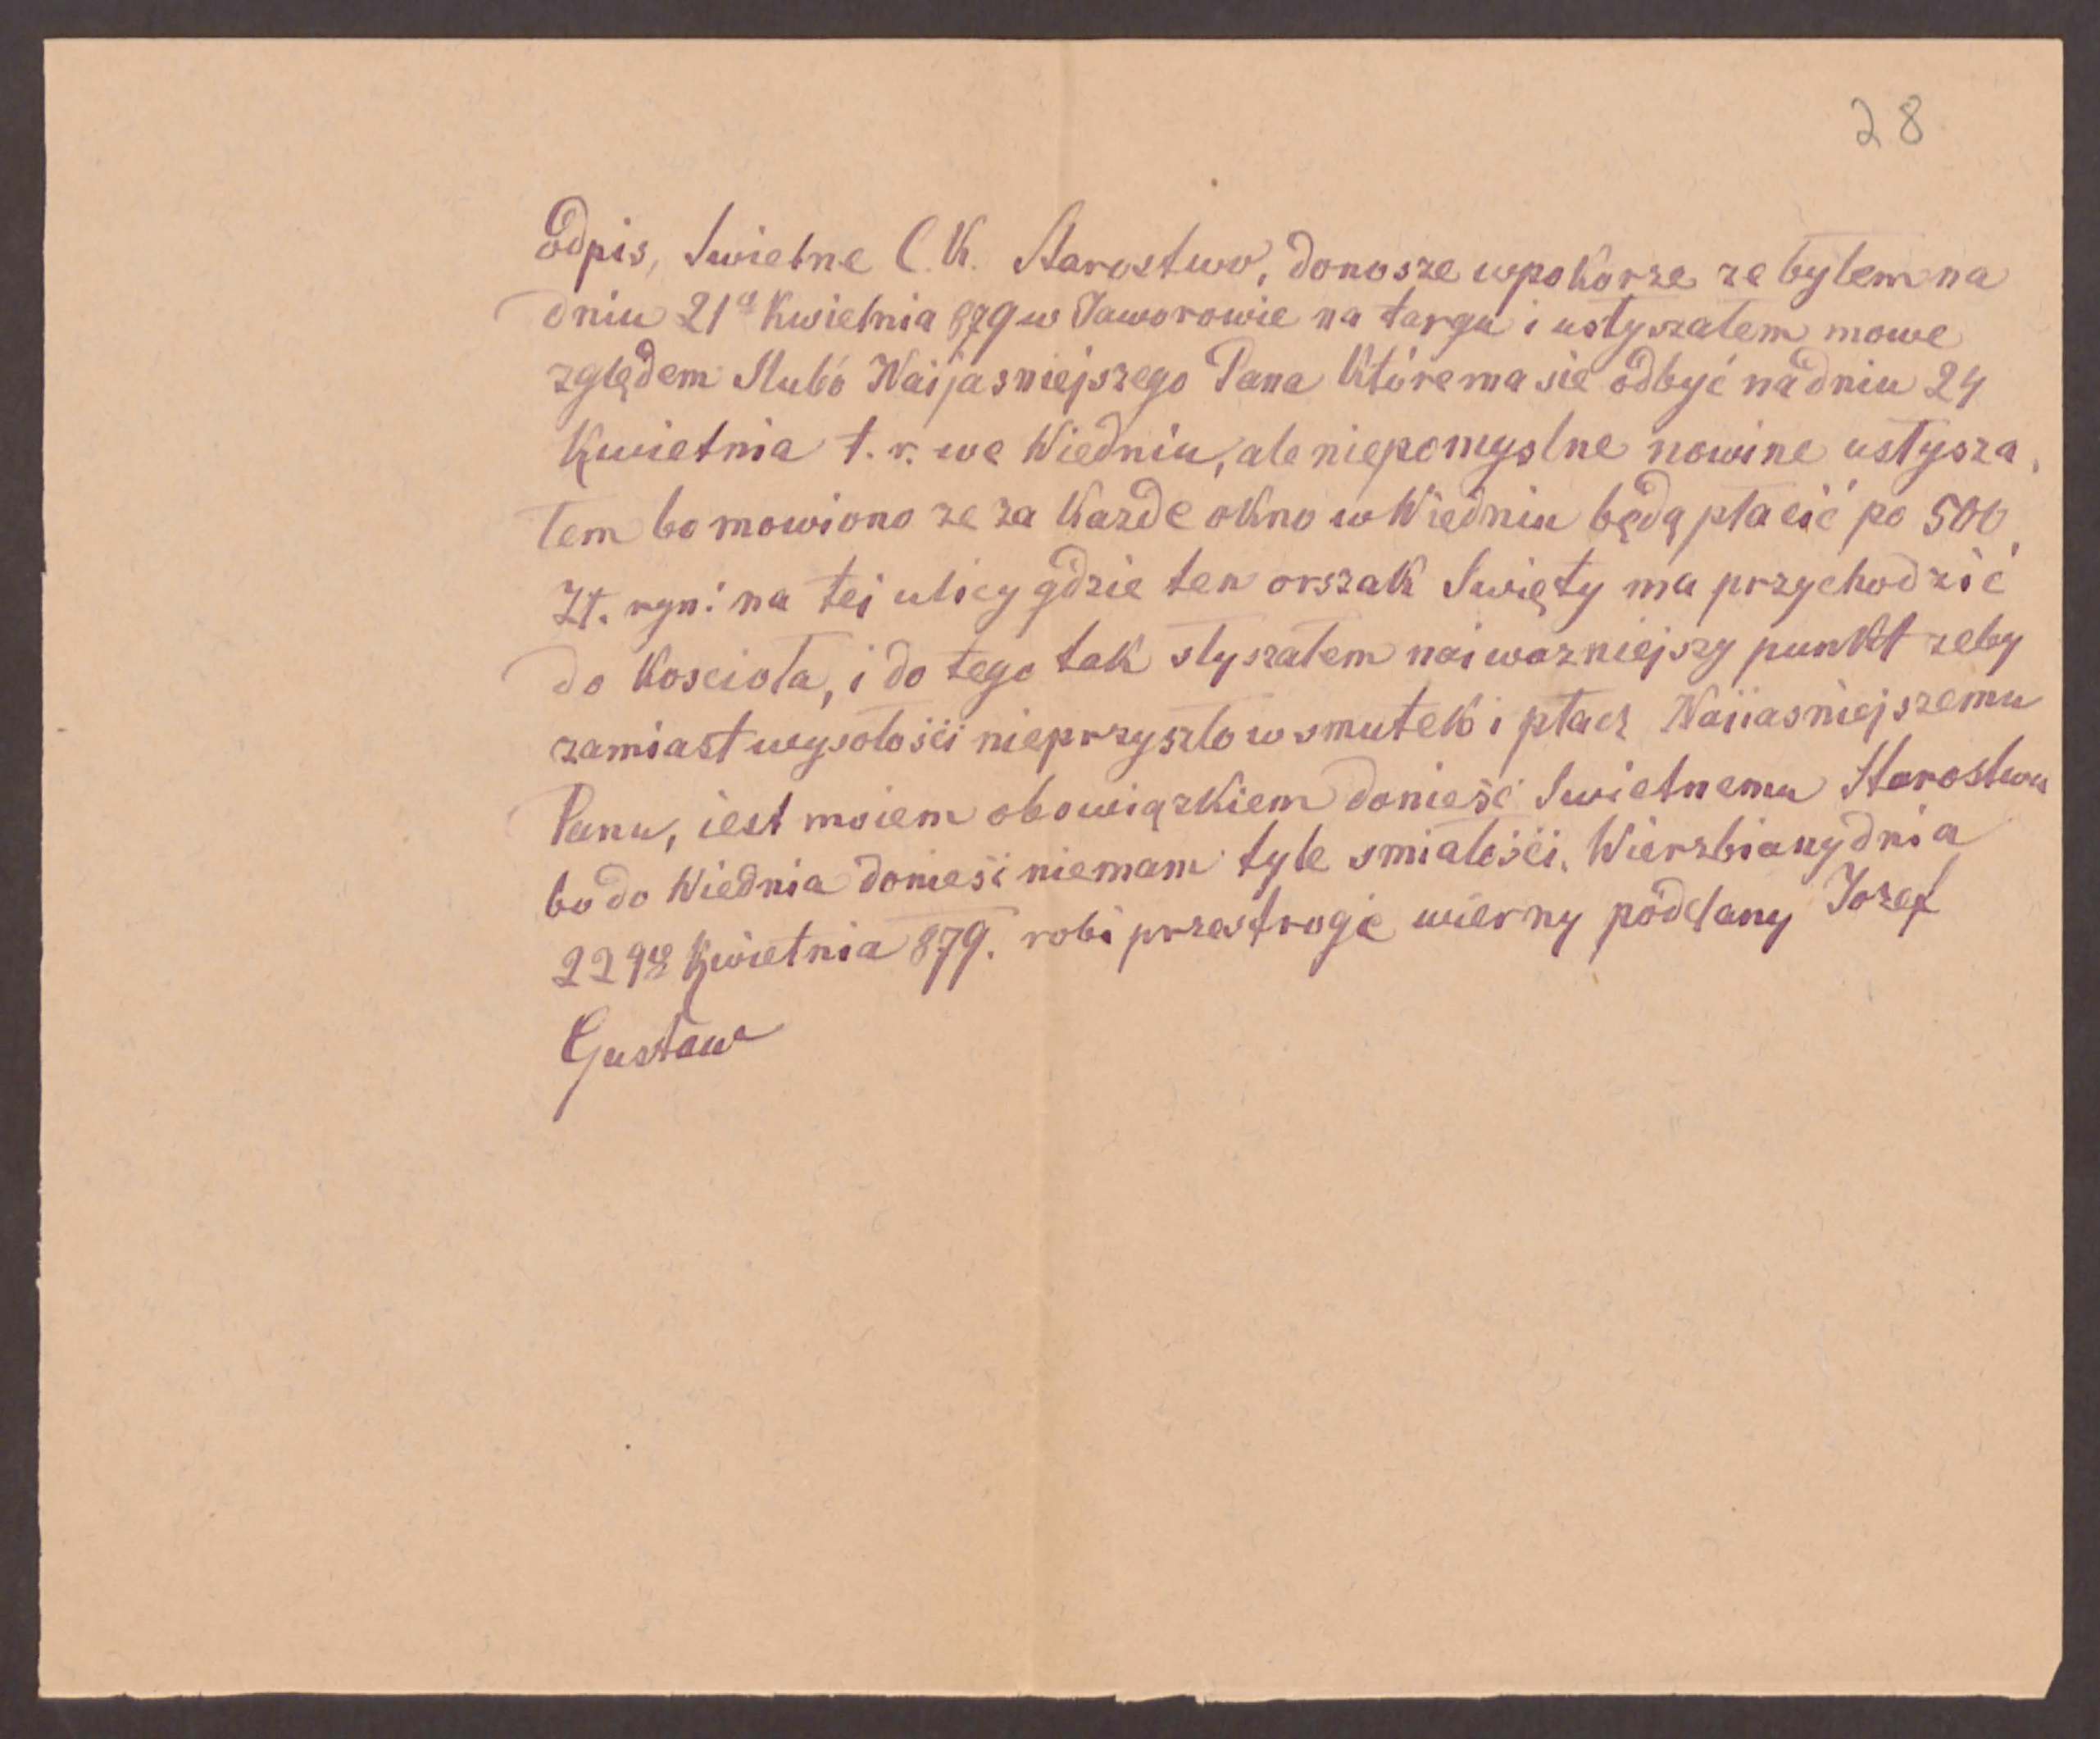 28
Odpis, Swietne C. K. Starostwo, donosze wpokorze ze bylem na
dniu 21ᵍ Kwietnia 879 w Jaworowie na targu i usłyszałem mowe
zględem Slubó Naijasniejszego Pana Któremasie odbyć nadniu 24
Kwietnia t. r. we Wiedniu, ale niepomyslne nowine usłysza,
łem bo mowiono ze za Kazde okno w Wiedniu będą płacić po 500,
Zł. ryn: na tei ulicy gdzie ten orszak Swięty ma przychodzić
do Kosciola, i do tego tak słyszałem naiwazniejszy punkt zeby
zamiast wysołośći nieprzyszło w smutek i płacz Naiiasniejszemu
Panu, iest moiem obowiązkiem donieść Swietnemu Starostwu
bo do Wiednia donieść niemam tyle smiałośći. Wierzbiany dnia
22go Kwietnia 879. robi przestroge wierny póddany Jozef
Gustaw